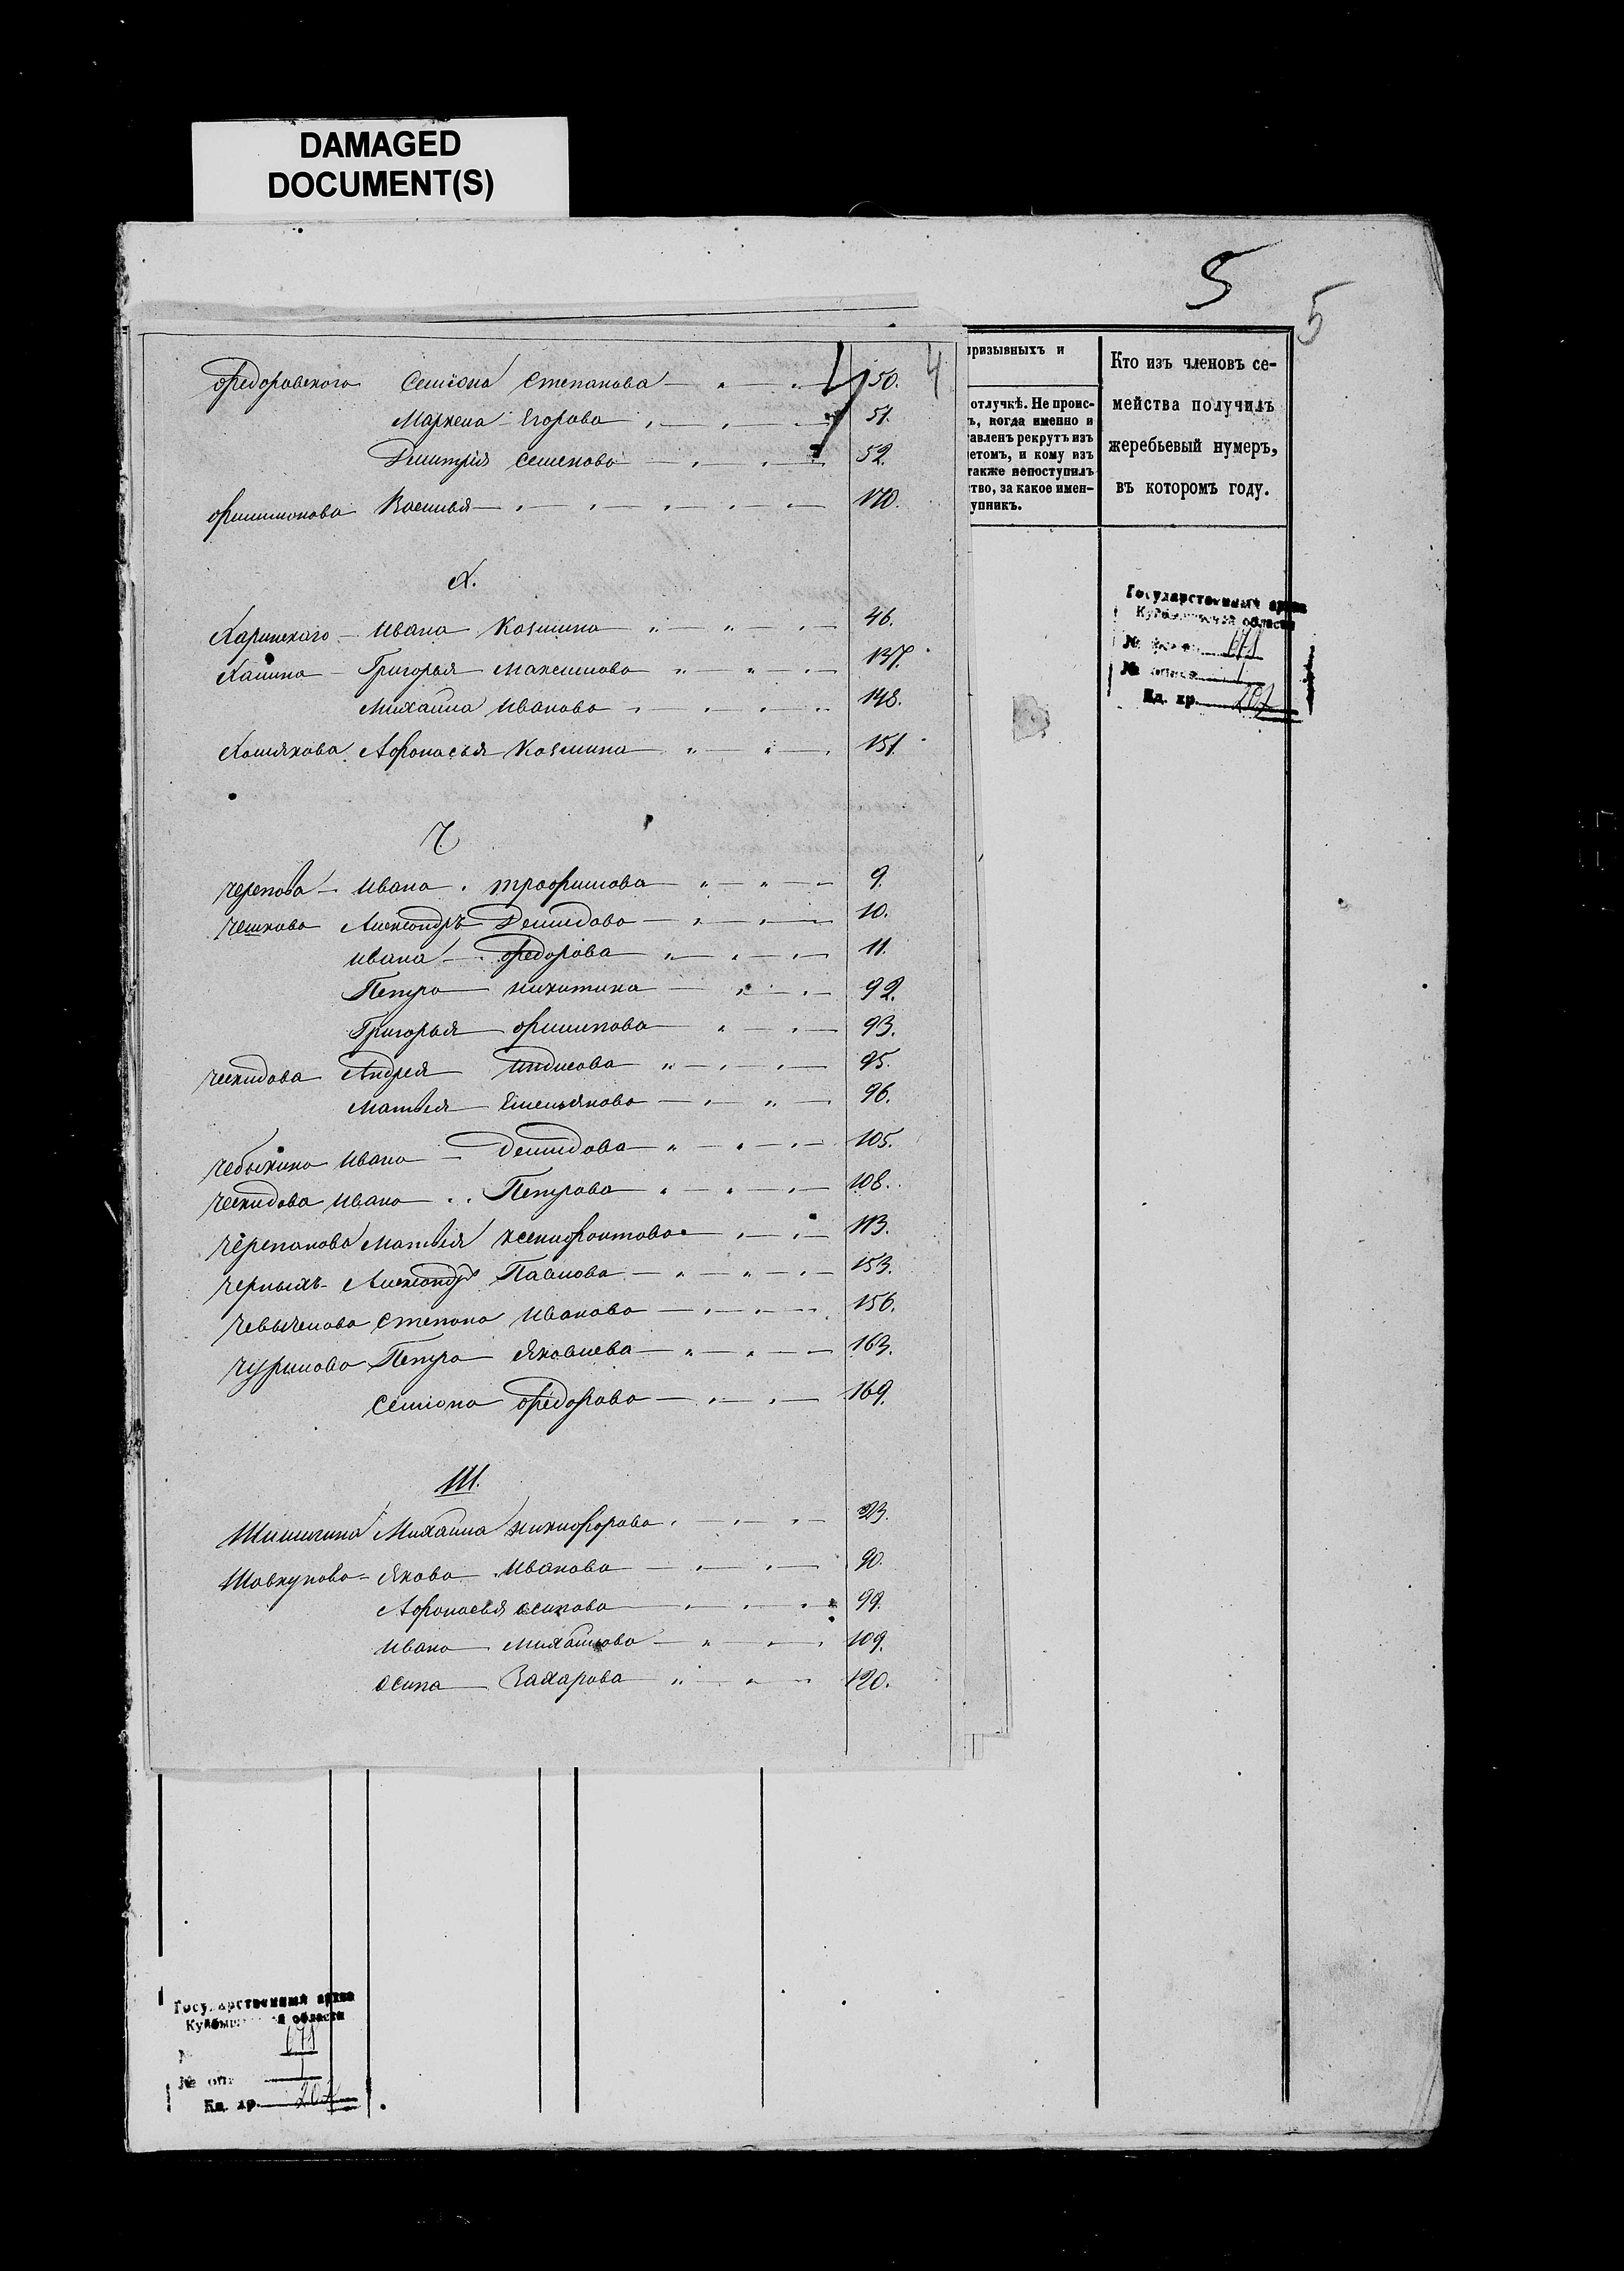 DAMAGED
DOCUMENT(S)
5
5
4
4
Федоровского Семіона Степанова 50.
Маркела Егорова 51.
Дмитрія Семенова 52.
Филимонова Василья 170.
Х.
Харинскаго Ивана Козмина 46.
Ханина Григорья Максимова 137.
Михаила Иванова 148.
Хомякова Афонасья Козмина 151.
Ч.
Черепова Ивана Трофимова 9.
Чешкова Александръ Демидова 10.
Ивана Федорова 11.
Петра Никитина 92.
Григорья Филипова 93.
Ческидова Андрея 95.
Матвея Емельянова 96.
Чебыкина Ивана Демидова 105.
Ческидова Ивана Петрова 108.
Черепанова Матвея Ксенофонтова 113.
Черныхъ Александр Павлова 153.
Степана Иванова 156.
Чурилова Петра Яковлева 163.
Семіона Федорова 169.
Ш.
Шишигина Михаила Никифорова 23.
Шавкунова Якова Иванова 90.
Афонасья Осипова 99.
Ивана Михайлова 109.
Осипа Захарова 120.
призывныхъ и
отлучкѣ. Не проис-
ъ, когда именно и
авленъ рекрутъ изъ
етомъ, и кому изъ
также непоступилъ
ство, за какое имен-
упникъ.
Кто изъ членовъ се-
мейства получилъ
жеребьевый нумеръ,
въ которомъ году.
Государственный архив
Куйбышевской области
№
№ 1
Ед. хр. 207
Государственный архив
Куйбышевской области
№
№ оп. 1
Ед. хр. 207